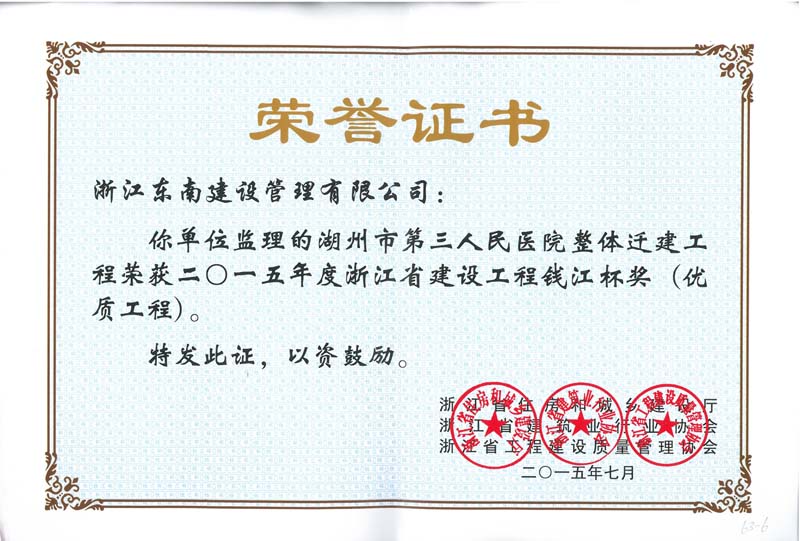 荣誉证书
浙江东南建设管理有限公司：
你单位监理的湖州市第三人民医院整体迁建工
程荣获二〇一五年度浙江省建设工程钱江杯奖（优
质工程）。
特发此证，以资鼓励。
浙江省住房和城乡建设厅
浙江省建筑业行业协会
浙江省工程建设质量管理协会
二〇一五年七月
浙江省住房和城乡建设厅
浙江省建筑业行业协会
浙江省工程建设质量管理协会
63-6